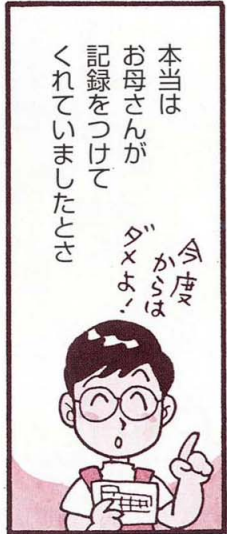 本当は
お母さんが
記録をつけて
くれていましたとさ
今度
からは
ダメよ!